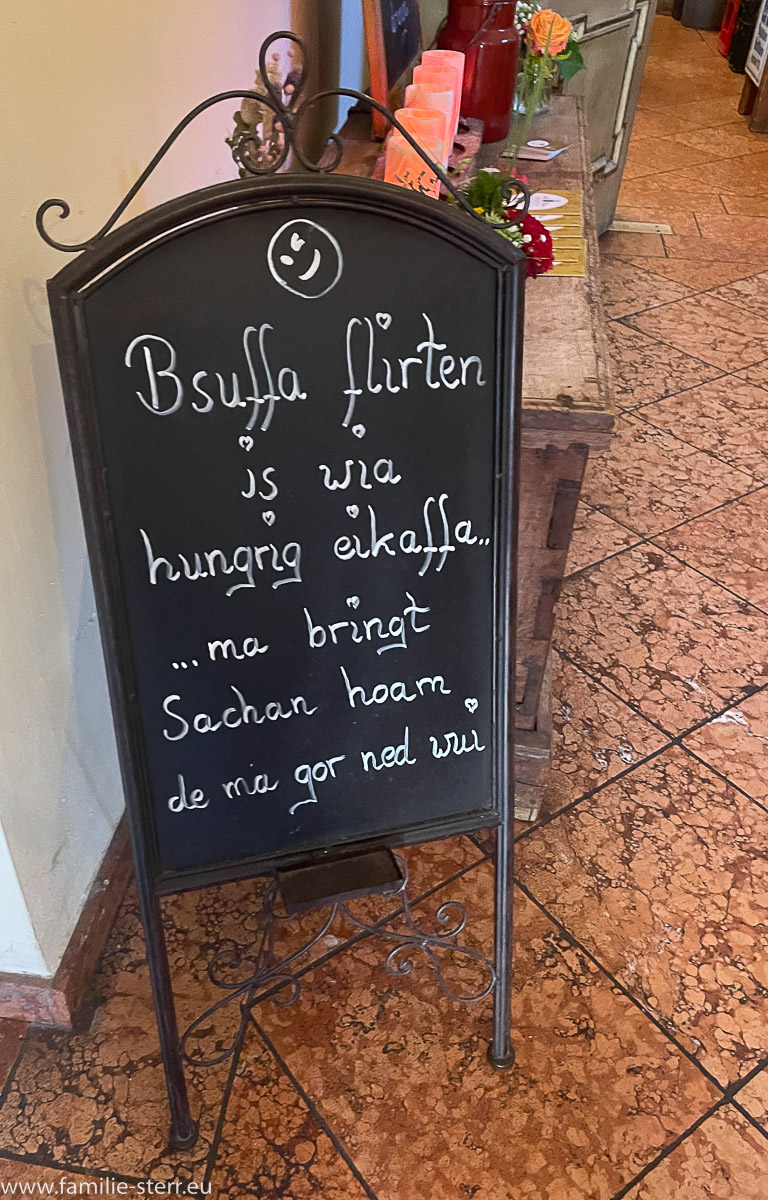 Bsuffa flirten
is wia
hungrig eikaffa..
...ma bringt
Sachan hoam
de ma gor ned wui
www.familie-sterr.eu